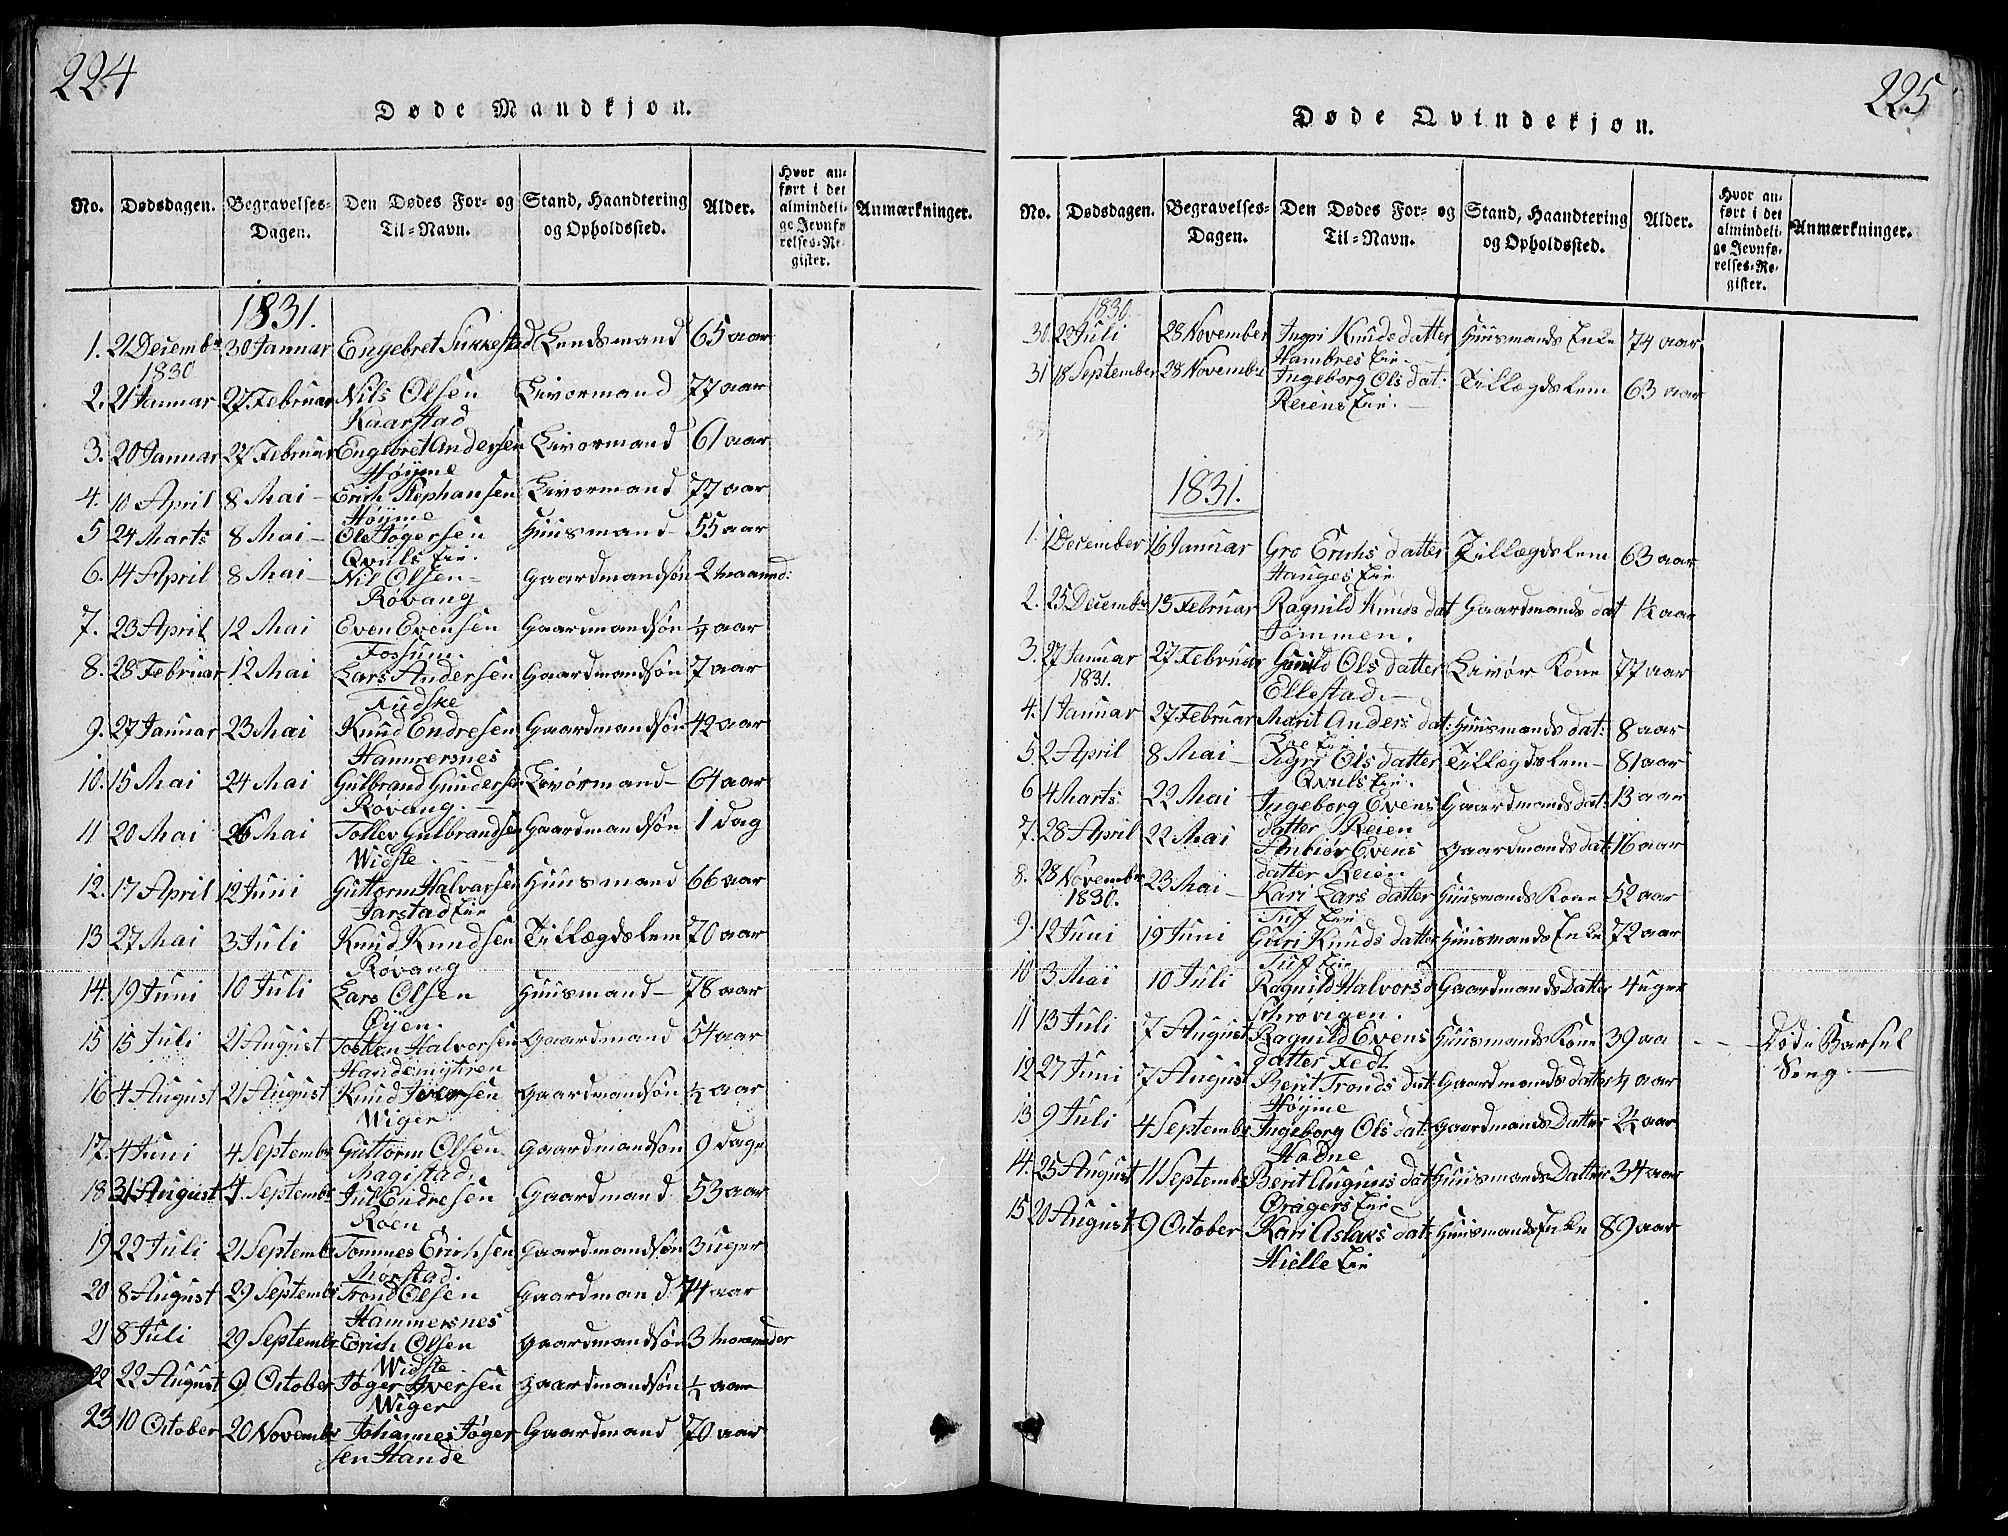 224
Døde Mandkjøn.
No. Dødsdagen. Begravelses-Dagen. Den Dødes For- og Til-Navn. Stand, Haandtering og Opholdssted. Alder. Hvor anført i det almindelige Jevnførelses-Register. Anmærkninger.
1831.
1. 21 Decembr 30 Januar Engebret Sukkestad Lensmand 65 aar
1830
2. 21 Januar 27 Februar Nils Olsen Livørmand 77 aar
Kaarstad
3. 20 Januar 27 Februar Engebret Andersen Livørmand 61 aar
Høyme
4. 10 April 8 Mai - Erich Stephansen Livørmand 77 aar
Høyme
5 24 Marts 8 Mai - Ole Tøgersen Huusmand 55 aar
Qvuls Eie.
6. 14 April 8 Mai - Nil Olsen Gaardmandsøn 2 maaned:
Røvang
7. 23 April 12 Mai Even Evensen Gaardmandsøn ½ aar
Fossum.
8. 28 Februar 12 Mai Lars Andersen Gaardmandsøn 7 aar
Fudske
9. 27 Januar 23 Mai Knud Endresen Gaardmandsøn 42 aar
Hammersnes
10. 15 Mai 24 Mai Gulbrand Gundersen Livørmand 64 aar
Røvang.
11 20 Mai 26 Mai Tollev Gulbrandsen Gaardmandsøn 1 Dag
Widste
12. 17 April 12 Juni Guttorm Halvorsen Huusmand 66 aar
Jarstad Eie
13 27 Mai 3 Juli Knud Knudsen Tillægdslem 70 aar
Røvang
14. 19 Juni 10 Juli Lars Olsen Huusmand 78 aar
Øyen.
15 15 Juli 21 August Torsten Halvorsen Gaardmand 54 aar
Handemytren
16 4 August 21 August Knud Iversen Gaardmandsøn ½ aar
Wiger
17. 4 Juni 4 Septembr Guttorm Olsen Gaardmandsøn 9 Dage
Magistad
18 31 August 4 Septembr Jul Endresen Gaardmand 53 aar
Roen
19 22 Juli 21 Septembr Tommes Erichsen Gaardmandsøn 3 uger
Mørstad.
20 8 August 29 Septembr Trond Olsen Gaardmand 74 aar
Hammersnes
21 8 Juli 29 Septembr Erich Olsen Gaardmandsøn 3 maaneder
Widste
22 22 August 9 October Tøger Iversen Gaardmandsøn ½ aar
Wiger
23 10 October 20 Novembr Johannes Tøger Gaardmand 70 aar
sen Hande
225
Døde Qvindekjøn.
No. Dødsdagen. Begravelses-Dagen. Den Dødes For- og Til-Navn. Stand, Haandtering og Opholdssted. Alder. Hvor anført i det almindelige Jevnførelses-Register. Anmærkninger.
1830.
30. 22 Juli 28 November Ingri Knuds datter Huusmands Enke 74 aar
Hambres Eie
31 18 September 28 Novembr Ingeborg Ols dat: Tillægdslem 63 aar
Reiens Eie.
1831.
1. 1 December 16 Januar Gro Erichs datter Tillægdslem 63 aar
Hauges Eie
2. 25 Decembr 13 Februar Ragnild Knuds dat Gaardmands dat 1½ aar
Tommen.
3. 27 Januar 27 Februar Gunild Ols datter Livør Kone 77 aar
1831. Ellestad.
4. 1 Januar 27 Februar Marit Anders dat: Huusmands dat: 8 aar
Loe Eie
5. 2 April 8 Mai - Sigri Ols datter Tillægdslem 81 aar
Qvuls Eie.
6 4 Marts 22 Mai Ingeborg Evens Gaardmands dat: 13 aar
datter Reien
7. 28 April 22 Mai Anbiør Evens Gaardmands dat: 16 aar
datter Reien
8. 28 Novembr 23 Mai Kari Lars datter Huusmands Kone 52 aar
1830. Tuf Eie
9. 12 Juni 19 Juni Guri Knuds datter Huusmands Enke 72 aar
Tuf Eie
10 3 Mai 10 Juli Ragnild Halvors d Gaardmands Datter 4 uger
Schrøvigen.
11 13 Juli 7 August Ragnild Evens Huusmands Kone 39 aa Død i Barsel
datter Fedt Seng.
12 27 Juni 7 August Berit Tronds dat: Gaardmands datter ½ aar
Høyme
13 9 Juli 4 Septembr Ingeborg Ols dat: Gaardmands Datter 2½ aar
Hadne
14. 25 August 11 Septembr Berit Auguns dat Huusmands Datter 34 aar
Øragers Eie
15 20 August 9 October Kari Aslaks dat: Huusmands Enke 89 aar
Hielle Eie